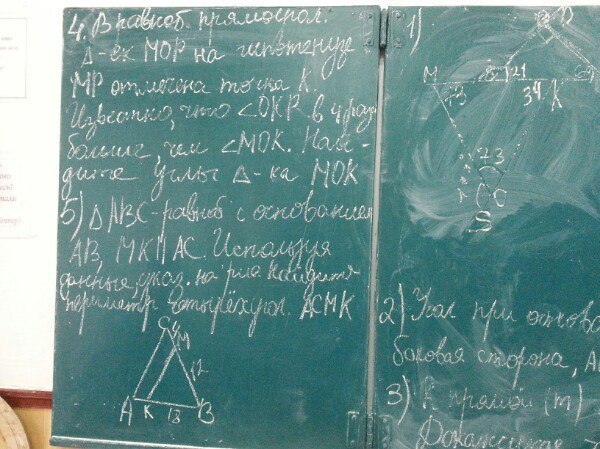 4. В равноб. прямоугол.
Δ-ек МОР на гипотенузе
МР отмечена точка К.
Известно, что ∠ОКР в 4 раза
больше, чем ∠МОК. Най-
дите углы Δ-ка МОК
5) Δ АВС-равноб с основанием
АВ, МК || АС. Используя
данные, указ. на рис найдите
периметр четырёхугол. АСМК
С 4
М
12
А К 13 В
1)
М
13
21
34 К
23
S
2) Угол при основа
боковая сторона,
3) К прямой (m)
Докажите